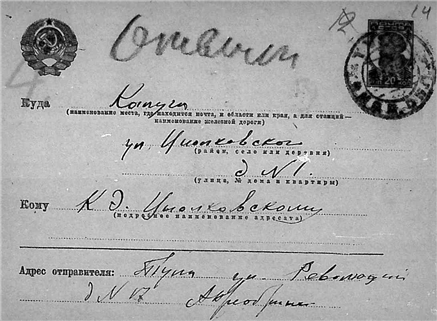 Ответил
12. 14
Куда Калуга
(наименование места, где находится почта, и области или края, а для станций—
наименование железной дороги)
ул. Циолковского
(район, село или деревня)
д №1.
(улица, № дома и квартиры)
Кому К Э. Циолковскому
(подробное наименование адресата)
Адрес отправителя: Тула ул. Революции
д №17